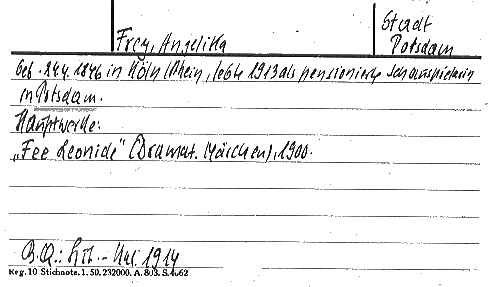 Frey, Angelika
Stadt
Potsdam
Geb. 24.4.1846 in Köln/Rhein, lebte 1913 als pensionierte Schauspielerin
in Potsdam.
Hauptwerke:
„Fee Leonide" (Dramat. Märchen), 1900.
B.Q.: Lit.-Kal. 1914
Reg. 10 Stichnote. 1. 50. 232000. A. 803. S. 4062